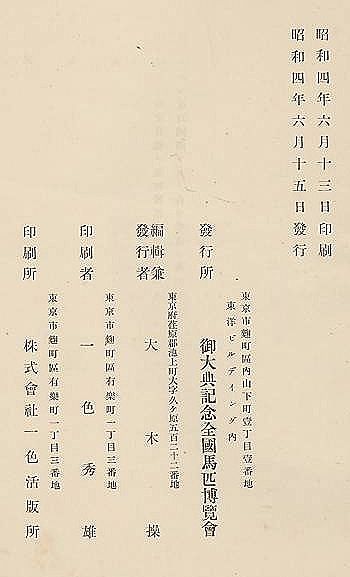 昭和四年六月十三日印刷
昭和四年六月十五日發行
東京市麴町區内山下町壹丁目壹番地
東洋ビルデイング内
發行所　御大典記念全國馬匹博覽會
東京府荏原郡池上町大字久ケ原五百二十二番地
編輯兼發行者　大木操
東京市麴町區有樂町一丁目三番地
印刷者　一色秀雄
東京市麴町區有樂町一丁目三番地
印刷所　株式會社一色活版所